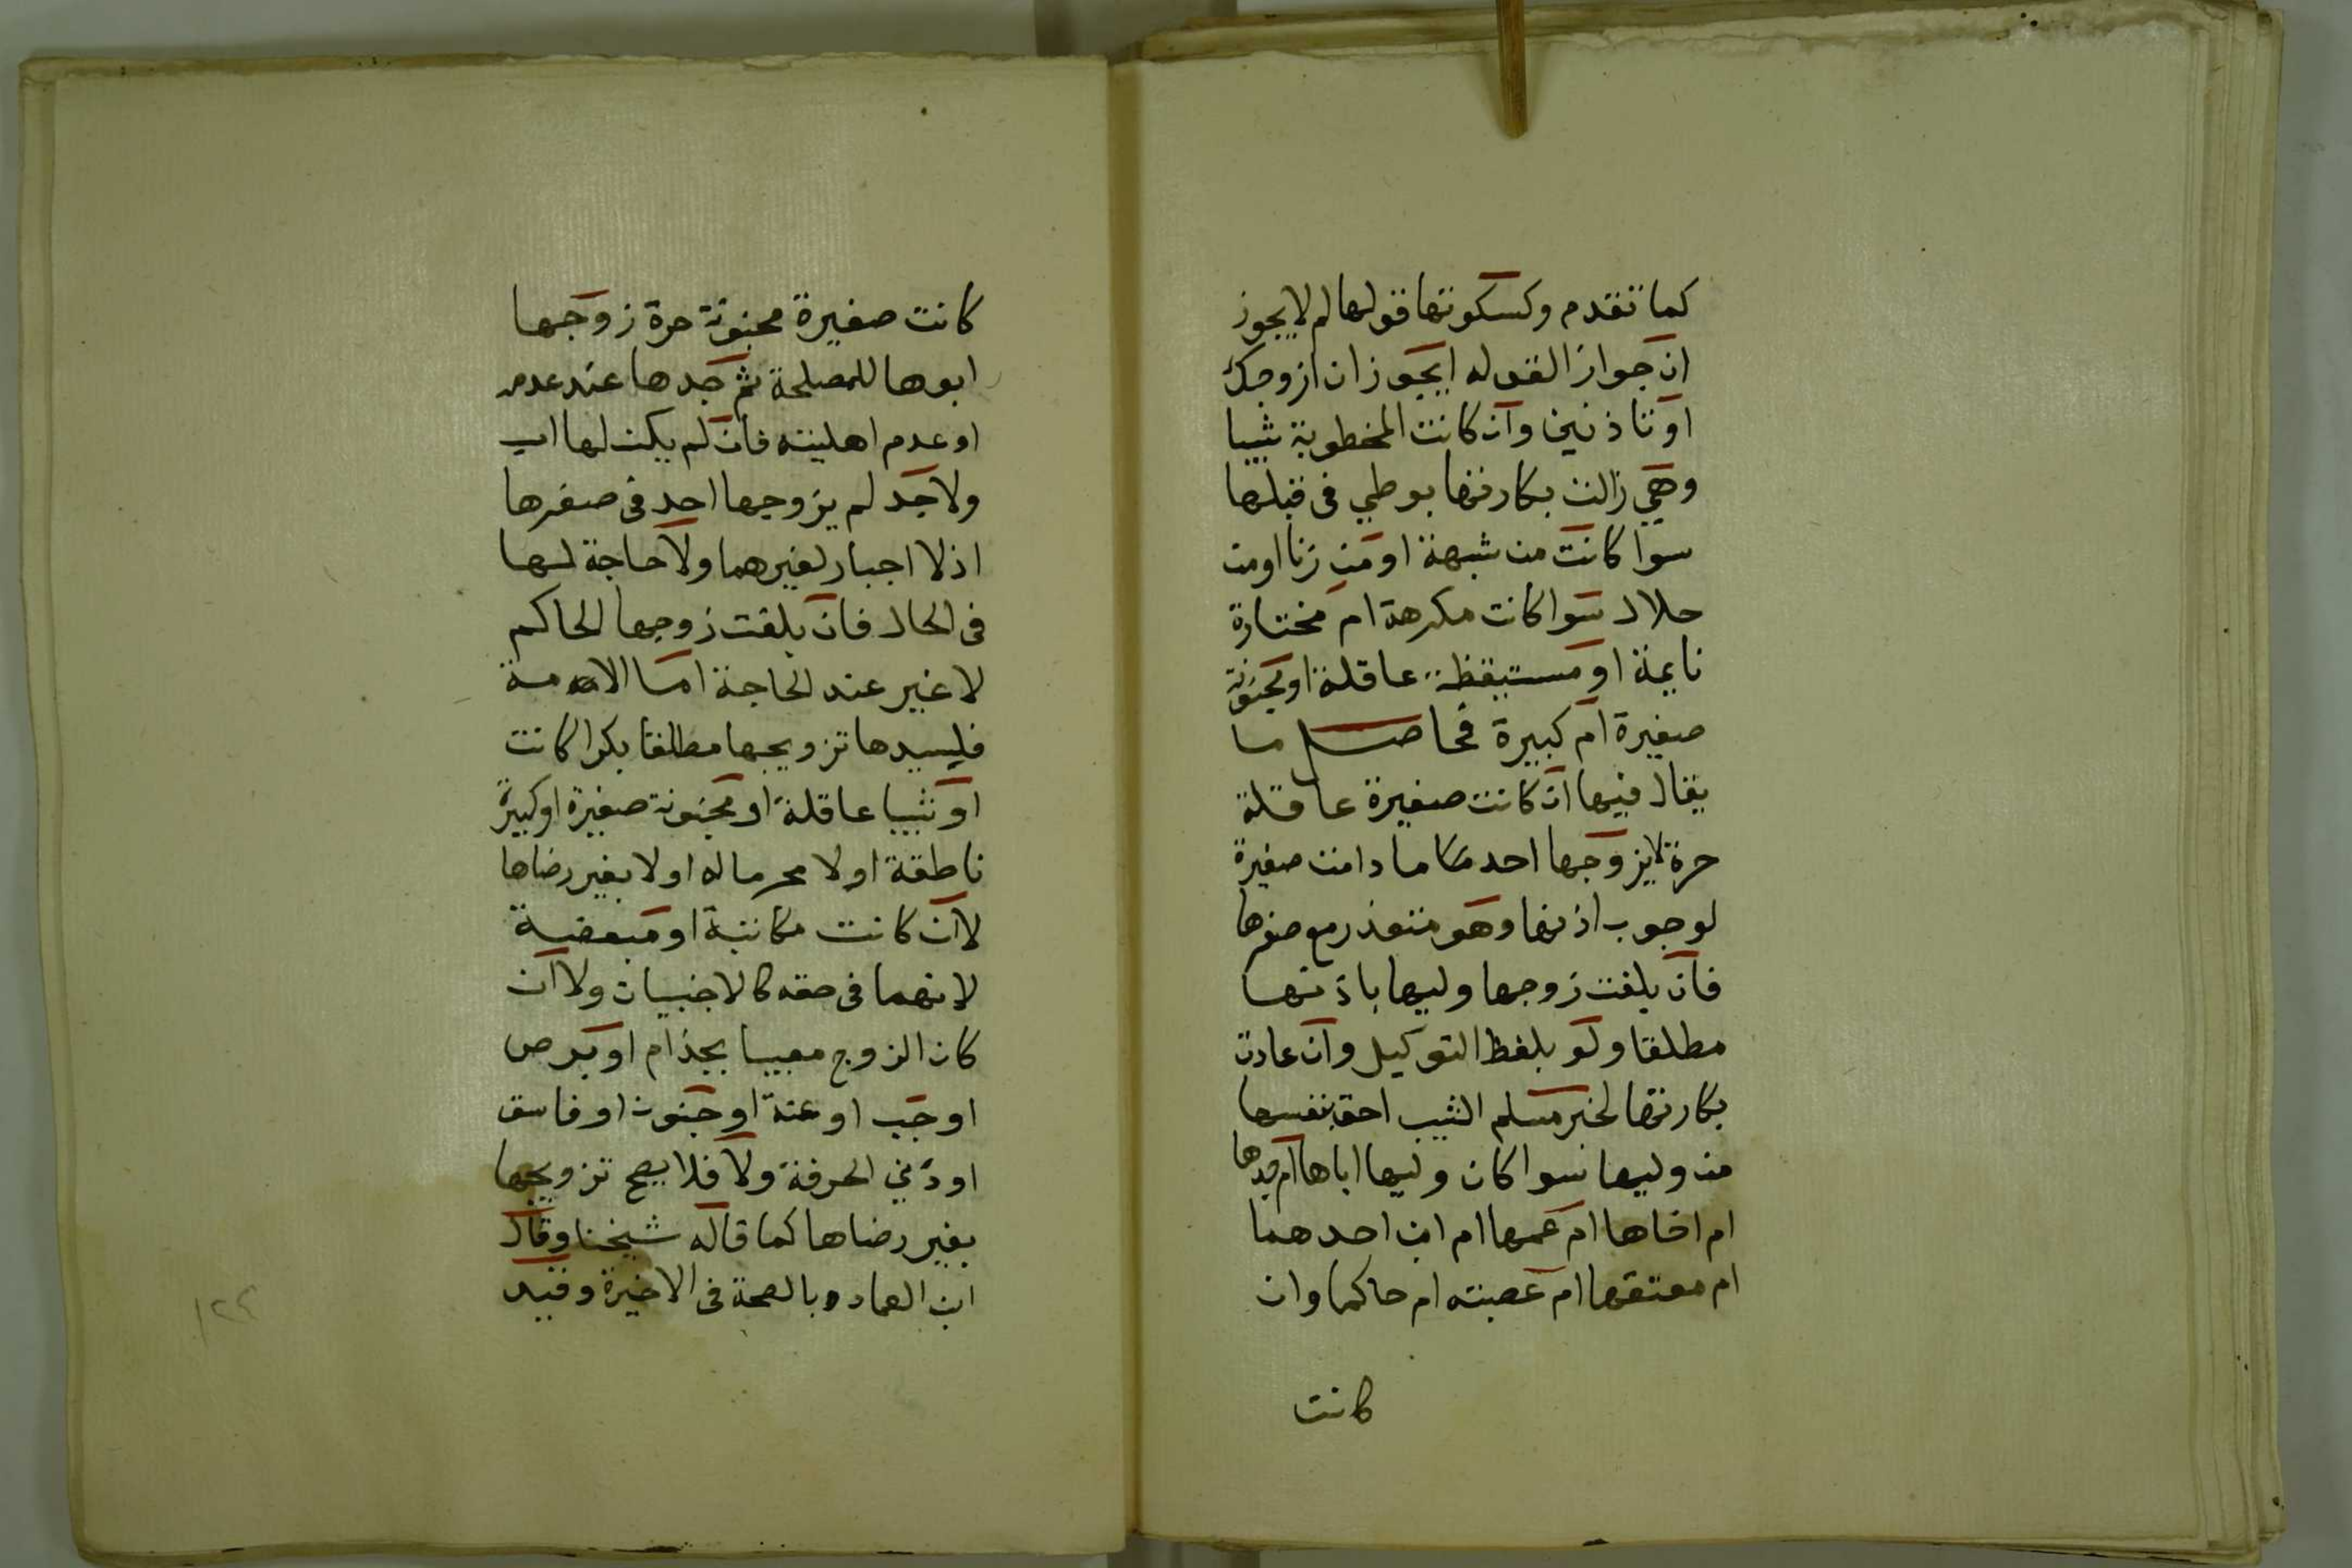 كما تقدم وكسكوتها قولها لم لا يجوز
ان جوازا لقوله ايجوز ان ازوجك
او تاذنين وان كانت المخطوبة ثيبا
وهي زالت بكارتها بوطي في قبلها
سوا كانت من شبهة او من زنا او من
حلال سوا كانت مكرهة ام مختارة
نايمة او مستيقظة عاقلة او مجنونة
صغيرة ام كبيرة فحاصل ما
يقال فيها ان كانت صغيرة عاقلة
حرة لا يزوجها احد ما دامت صغيرة
لوجوب اذنها وهو متعذر مع صغرها
فان بلغت زوجها وليها باذنها
مطلقا ولو بلفظ التوكيل وان عادت
بكارتها لخبر مسلم الثيب احق بنفسها
من وليها سوا كان وليها اباها ام جدها
ام اخاها ام عمها ام ابن احدهما
ام معتقها ام عصبته ام حاكما وان
كانت
كانت صغيرة مجنونة حرة زوجها
ابوها للمصلحة ثم جدها عند عدمه
او عدم اهليته فان لم يكن لها اب
ولا جد لم يزوجها احد في صغرها
اذ لا اجبار لغيرهما ولا حاجة لها
في الحال فان بلغت زوجها الحاكم
لا غير عند الحاجة اما الامة
فلسيدها تزويجها مطلقا بكرا كانت
او ثيبا عاقلة او مجنونة صغيرة او كبيرة
ناطقة او لا محرما له او لا بغير رضاها
لا ان كانت مكاتبة او مبعضة
لانهما في حقه كالاجنبيات ولا ان
كان الزوج معيبا بجذام او برص
او جب او عنة او جنون او فاسق
او دني الحرفة ولا فلا يصح تزويجها
بغير رضاها كما قاله شيخنا وقال
ابن العماد وبالصحة في الاخيرة وقيد
١٢٢